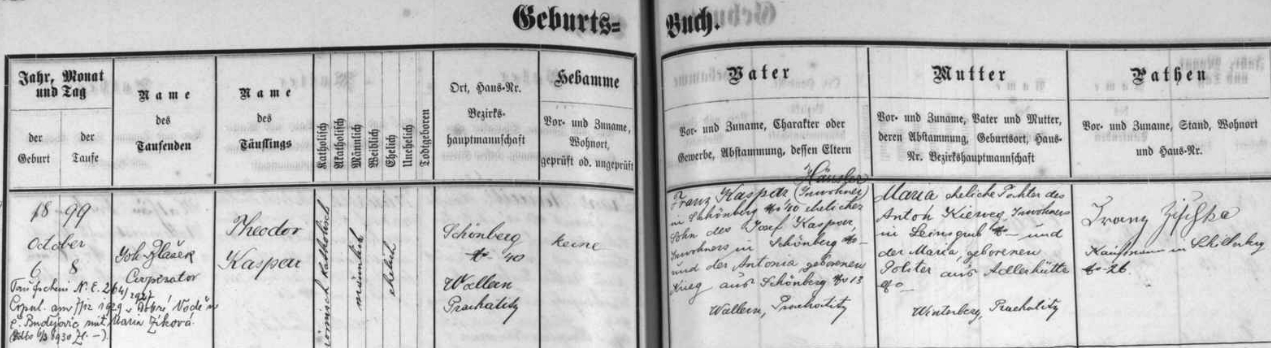 Geburts=
Buch.
Jahr, Monat
und Tag
der
Geburt
der
Taufe
Name
des
Taufenden
Name
des
Täuflings
Katholisch
Akatholisch
Männlich
Weiblich
Ehelich
Unehelich
Todtgeboren
Ort, Haus-Nr.
Bezirks-
hauptmannschaft
Hebamme
Vor- und Zuname,
Wohnort,
geprüft od. ungeprüft
Vater
Vor- und Zuname, Charakter oder
Gewerbe, Abstammung, dessen Eltern
Mutter
Vor- und Zuname, Vater und Mutter,
deren Abstammung, Geburtsort, Haus-
Nr. Bezirkshauptmannschaft
Pathen
Vor- und Zuname, Stand, Wohnort
und Haus-Nr.
18 99
October
6 8
Taufschein N. E.
Copul. am 1929
Budějovic mit Maria
1930
Joh.
Cooperator
Theodor
Kaspar
römisch katholisch
männlich
ehelich
Schönberg
40
Wallern
Prachatitz
keine
Häusler
Franz Kaspar (Inwohner)
in Schönberg 40 ehelicher
Sohn des Josef Kaspar,
Inwohners in Schönberg
und der Antonia geborenen
aus Schönberg 13
Wallern, Prachatitz
Maria eheliche Tochter des
Anton Inwohners
in und
der Maria, geborenen
aus Adlerhütte
Winterberg, Prachatitz
Franz Zischka
Kaufmann in
26